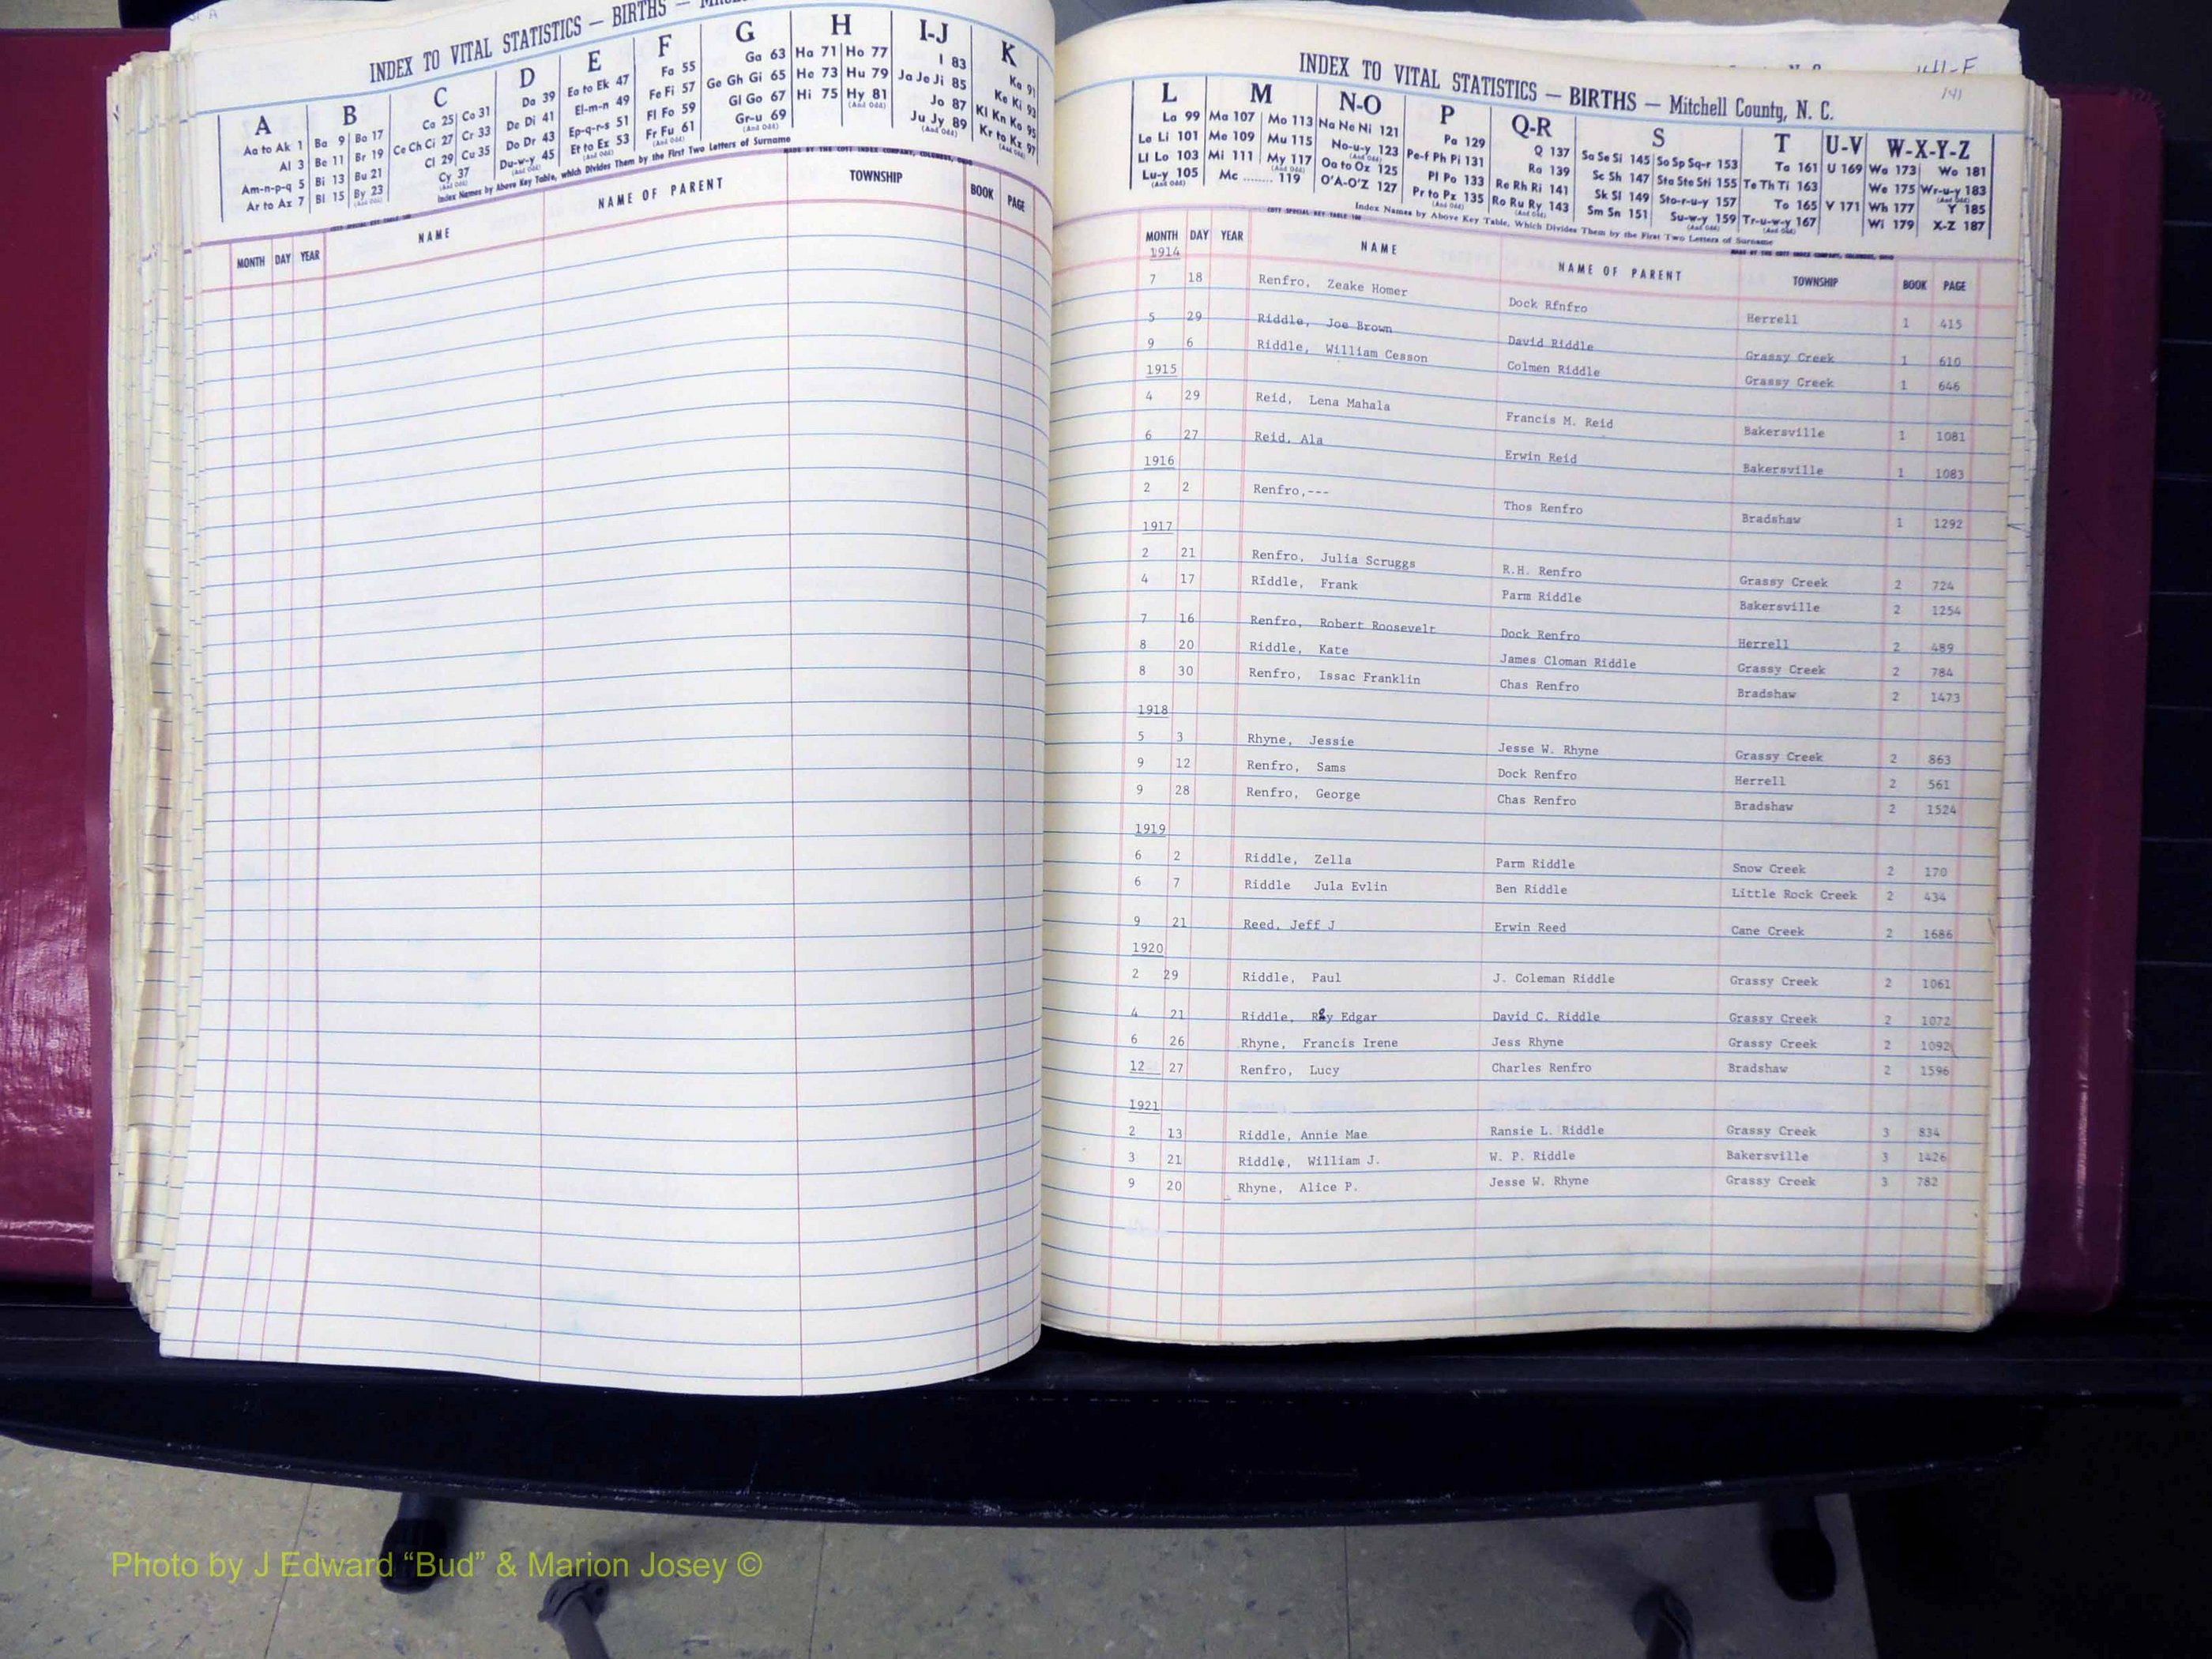 INDEX TO VITAL STATISTICS — BIRTHS —
A B C D E F G H I-J K
Aa to Ak 1 Ba 9 Bo 17 Ca 25 Co 31 Da 39 Ea to Ek 47 Fa 55 Ga 63 Ha 71 Ho 77 I 83 Ka 91
Al 3 Be 11 Br 19 Ce Ch Ci 27 Cr 33 De Di 41 El-m-n 49 Fe Fi 57 Ge Gh Gi 65 He 73 Hu 79 Ja Je Ji 85 Ke Ki 93
Am-n-p-q 5 Bi 13 Bu 21 Cl 29 Cu 35 Do Dr 43 Ep-q-r-s 51 Fl Fo 59 Gl Go 67 Hi 75 Hy 81 Jo 87 Kl Kn Ko 95
Ar to Az 7 Bl 15 By 23 Cy 37 Du-w-y 45 Et to Ez 53 Fr Fu 61 Gr-u 69 Ju Jy 89 Kr to Kz 97
Index Names by Above Key Table, which Divides Them by the First Two Letters of Surname
MADE BY THE COTT INDEX COMPANY, COLUMBUS, OHIO
MONTH DAY YEAR NAME NAME OF PARENT TOWNSHIP BOOK PAGE
141-F
141
INDEX TO VITAL STATISTICS — BIRTHS — Mitchell County, N. C.
L M N-O P Q-R S T U-V W-X-Y-Z
La 99 Ma 107 Mo 113 Na Ne Ni 121 Pa 129 Q 137 Sa Se Si 145 So Sp Sq-r 153 Ta 161 U 169 Wa 173 Wo 181
Le Li 101 Me 109 Mu 115 No-u-y 123 Pe-f Ph Pi 131 Ra 139 Sc Sh 147 Sta Ste Sti 155 Te Th Ti 163 We 175 Wr-u-y 183
Ll Lo 103 Mi 111 My 117 Oa to Oz 125 Pl Po 133 Re Rh Ri 141 Sk Sl 149 Sto-r-u-y 157 To 165 V 171 Wh 177 Y 185
Lu-y 105 Mc ........ 119 O'A-O'Z 127 Pr to Pz 135 Ro Ru Ry 143 Sm Sn 151 Su-w-y 159 Tr-u-w-y 167 Wi 179 X-Z 187
Index Names by Above Key Table, Which Divides Them by the First Two Letters of Surname
COTT SPECIAL KEY TABLE MADE BY THE COTT INDEX COMPANY, COLUMBUS, OHIO
MONTH DAY YEAR NAME NAME OF PARENT TOWNSHIP BOOK PAGE
1914
7 18 Renfro, Zeake Homer Dock Rfnfro Herrell 1 415
5 29 Riddle, Joe Brown David Riddle Grassy Creek 1 610
9 6 Riddle, William Cesson Colmen Riddle Grassy Creek 1 646
1915
4 29 Reid, Lena Mahala Francis M. Reid Bakersville 1 1081
6 27 Reid, Ala Erwin Reid Bakersville 1 1083
1916
2 2 Renfro,--- Thos Renfro Bradshaw 1 1292
1917
2 21 Renfro, Julia Scruggs R.H. Renfro Grassy Creek 2 724
4 17 Riddle, Frank Parm Riddle Bakersville 2 1254
7 16 Renfro, Robert Roosevelt Dock Renfro Herrell 2 489
8 20 Riddle, Kate James Cloman Riddle Grassy Creek 2 784
8 30 Renfro, Issac Franklin Chas Renfro Bradshaw 2 1473
1918
5 3 Rhyne, Jessie Jesse W. Rhyne Grassy Creek 2 863
9 12 Renfro, Sams Dock Renfro Herrell 2 561
9 28 Renfro, George Chas Renfro Bradshaw 2 1524
1919
6 2 Riddle, Zella Parm Riddle Snow Creek 2 170
6 7 Riddle Jula Evlin Ben Riddle Little Rock Creek 2 434
9 21 Reed, Jeff J Erwin Reed Cane Creek 2 1686
1920
2 29 Riddle, Paul J. Coleman Riddle Grassy Creek 2 1061
4 21 Riddle, Ray Edgar David C. Riddle Grassy Creek 2 1072
6 26 Rhyne, Francis Irene Jess Rhyne Grassy Creek 2 1092
12 27 Renfro, Lucy Charles Renfro Bradshaw 2 1596
1921
2 13 Riddle, Annie Mae Ransie L. Riddle Grassy Creek 3 834
3 21 Riddle, William J. W. P. Riddle Bakersville 3 1426
9 20 Rhyne, Alice P. Jesse W. Rhyne Grassy Creek 3 782
Photo by J Edward “Bud” & Marion Josey ©